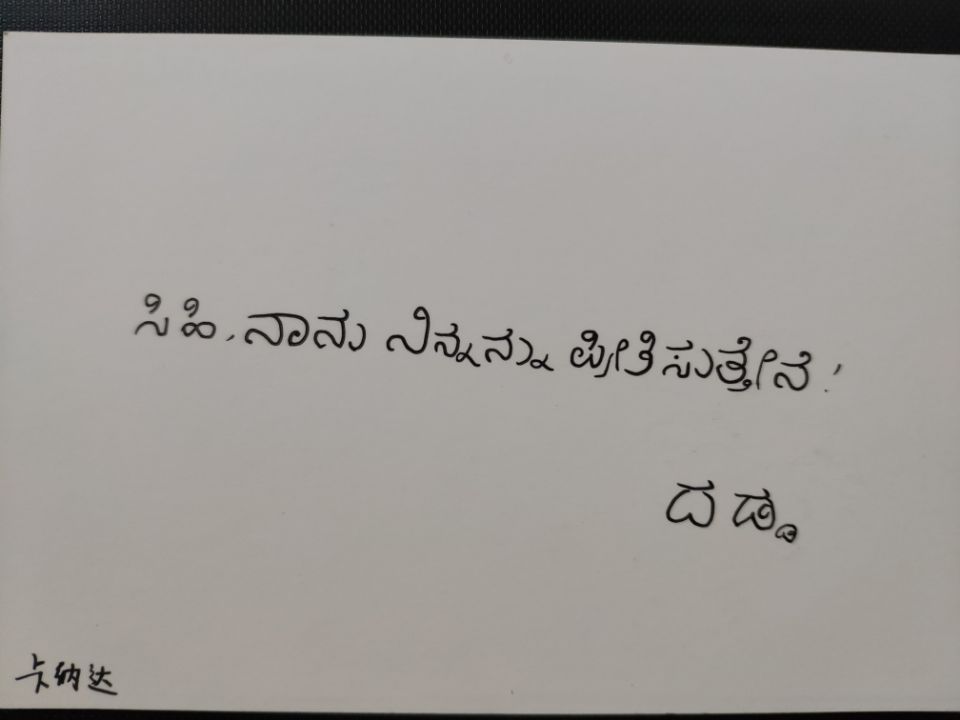 ಸಿಹಿ, ನಾನು ನಿನ್ನನ್ನು ಪ್ರೀತಿಸುತ್ತೇನೆ!
ದಡ್ಡ
卡纳达